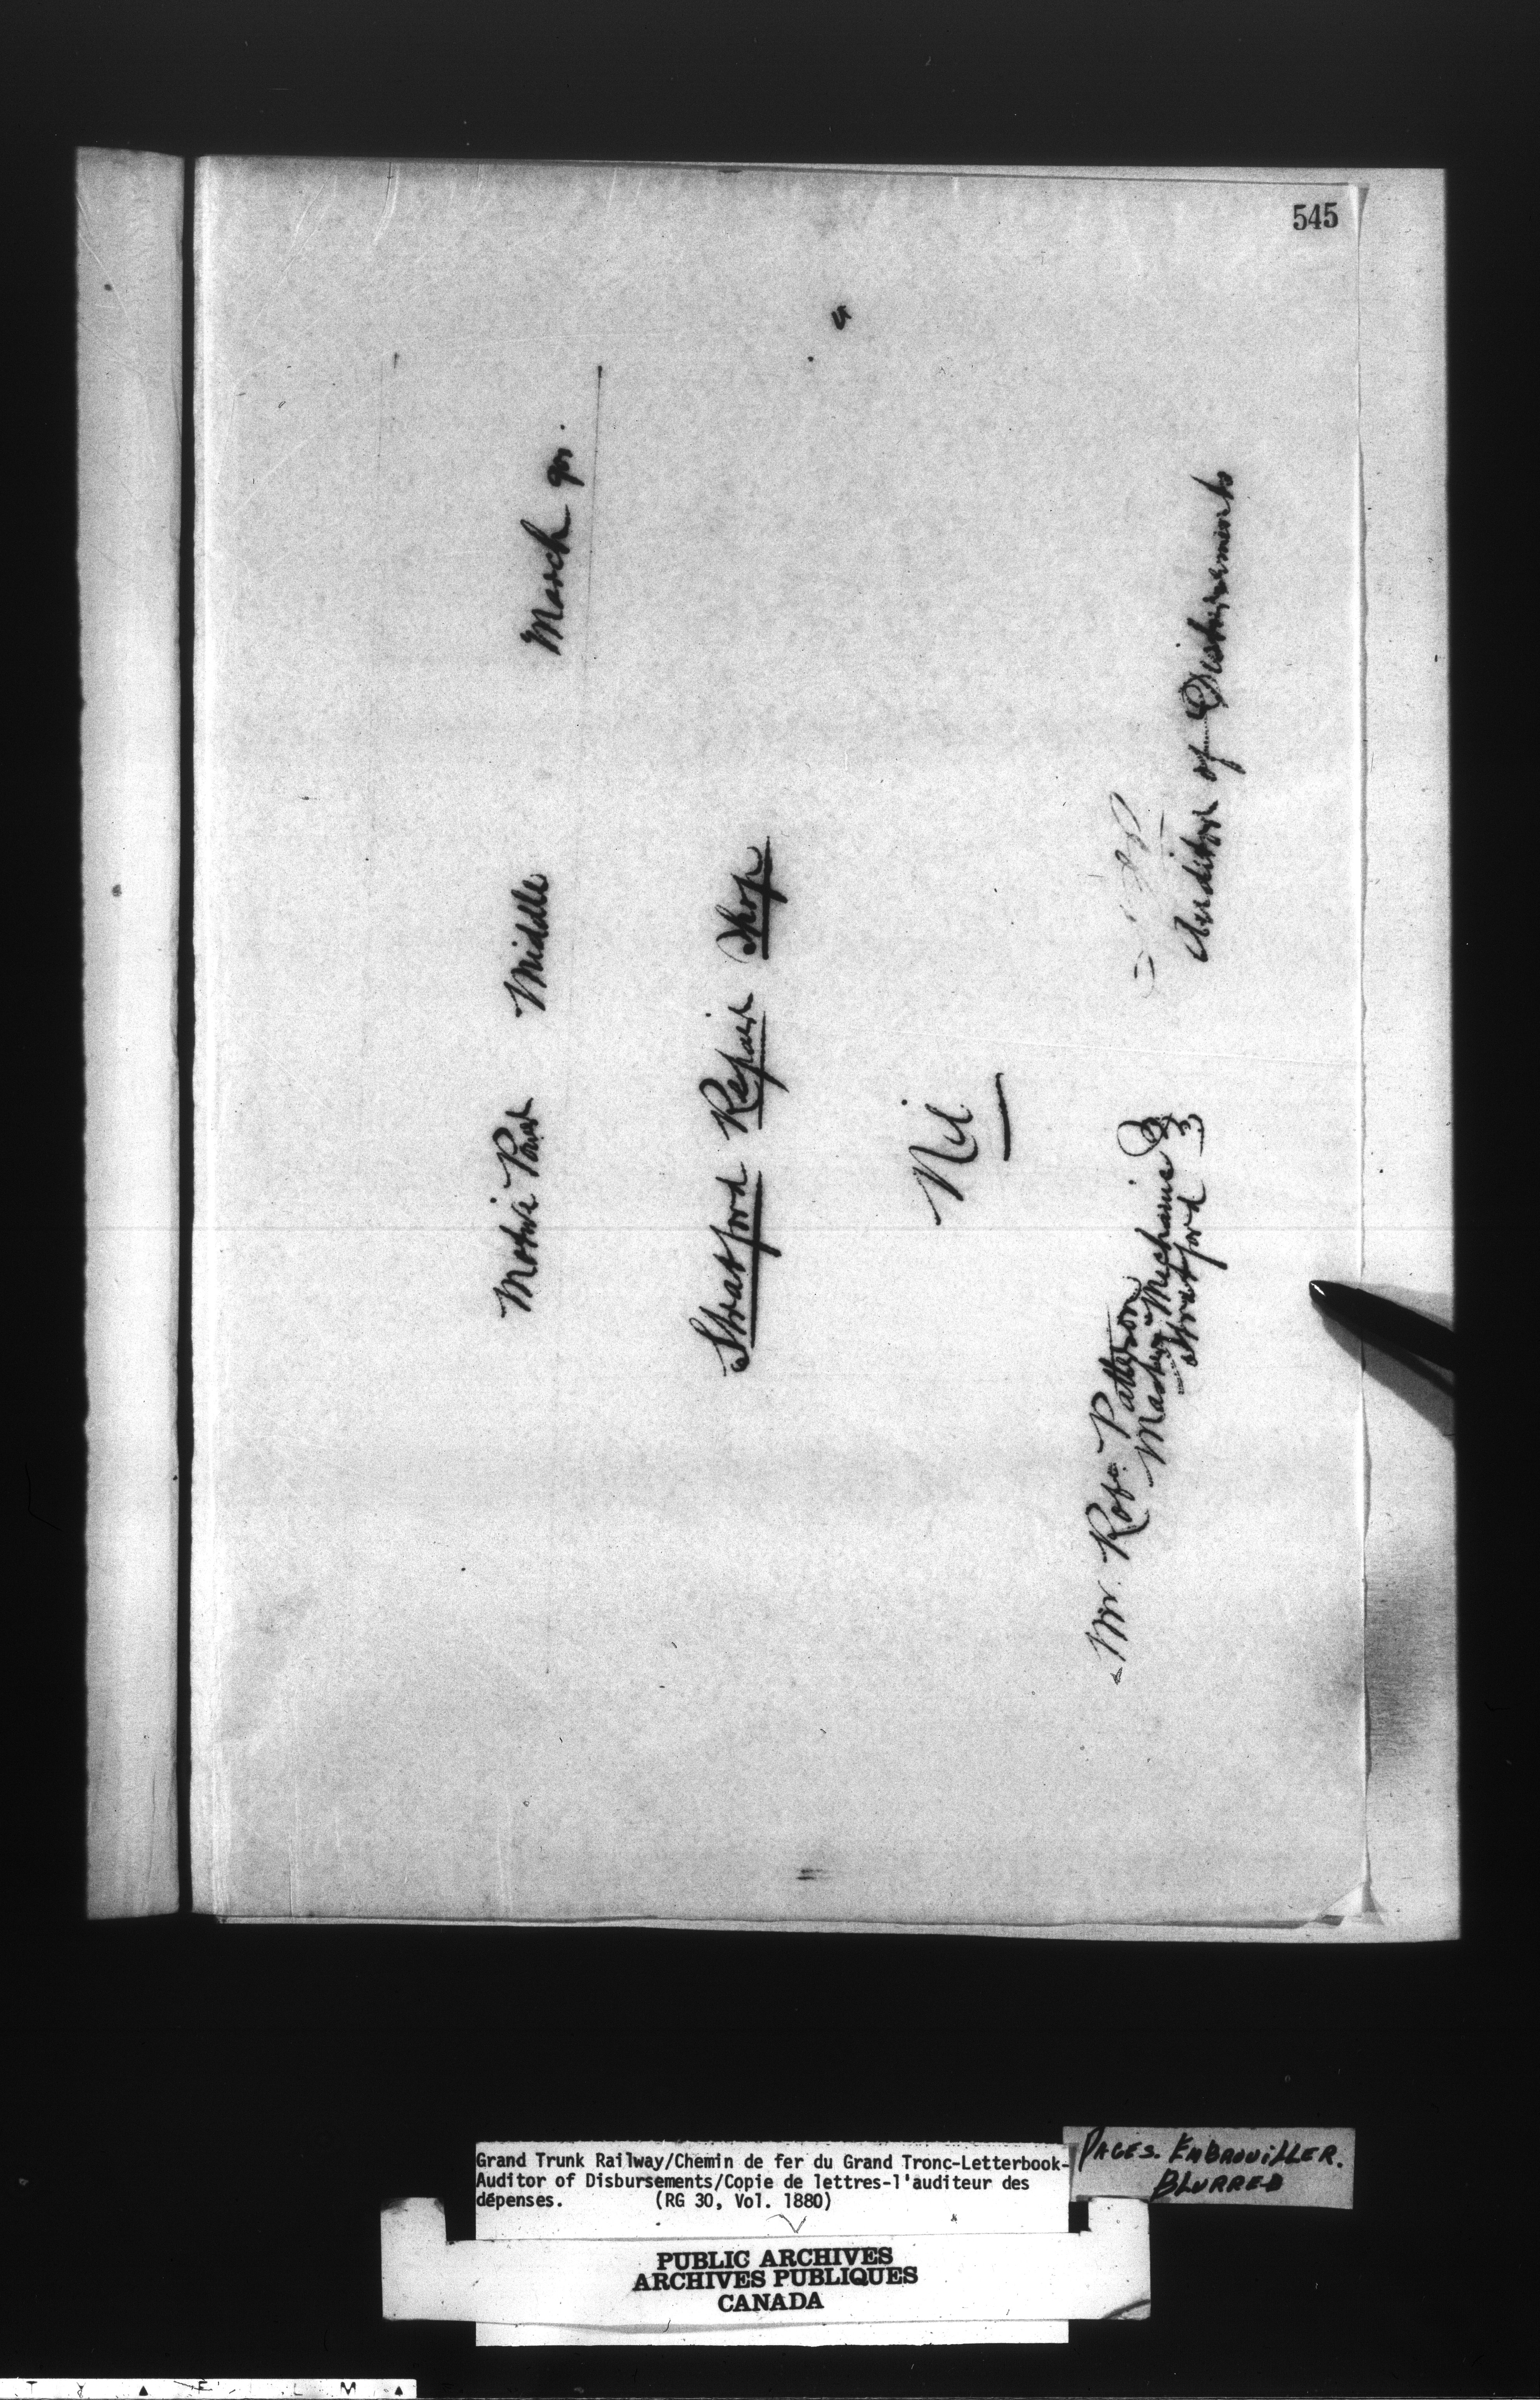 545
Motive Power Middle March 90.
Stratford Repair Shop
Nil
Mr. Robt. Patterson
Master Mechanic
Stratford
Auditor of Disbursements
Grand Trunk Railway/Chemin de fer du Grand Tronc-Letterbook-
Auditor of Disbursements/Copie de lettres-l'auditeur des
dépenses. (RG 30, Vol. 1880)
PAGES. EMBROUILLER.
BLURRED
PUBLIC ARCHIVES
ARCHIVES PUBLIQUES
CANADA